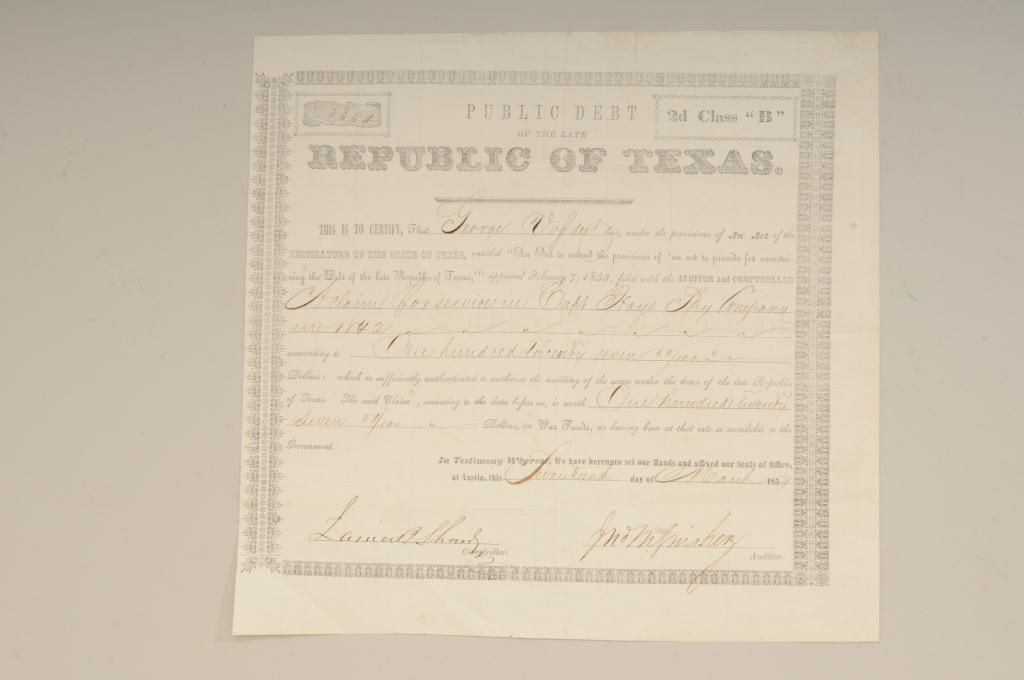 PUBLIC DEBT
2d Class "B"
OF THE LATE
REPUBLIC OF TEXAS.
THIS IS TO CERTIFY, That George has, under the provisions of An Act of the
LEGISLATURE OF THE STATE OF TEXAS, entitled "An Act to extend the provisions of 'an act to provide for ascertai-
ning the Debt of the late Republic of Texas,'" approved February 7, 1853, filed with the AUDITOR and COMPTROLLER
A claim for services in Capt Hays Spy Company
in 1842
according to One hundred twenty seven 50/100
Dollars: which is sufficiently authenticated to authorise the auditing of the same under the laws of the late Republic
of Texas. The said Claim, according to the data before us, is worth One hundred twenty
seven 50/100 Dollars, in Par Funds, as having been at that rate so available to the
Government.
In Testimony Whereof, We have hereunto set our Hands and affixed our Seals of Office,
at Austin, this Seventeenth day of March 1854
James B Shaw
Comptroller.
Jno M Swisher
Auditor.